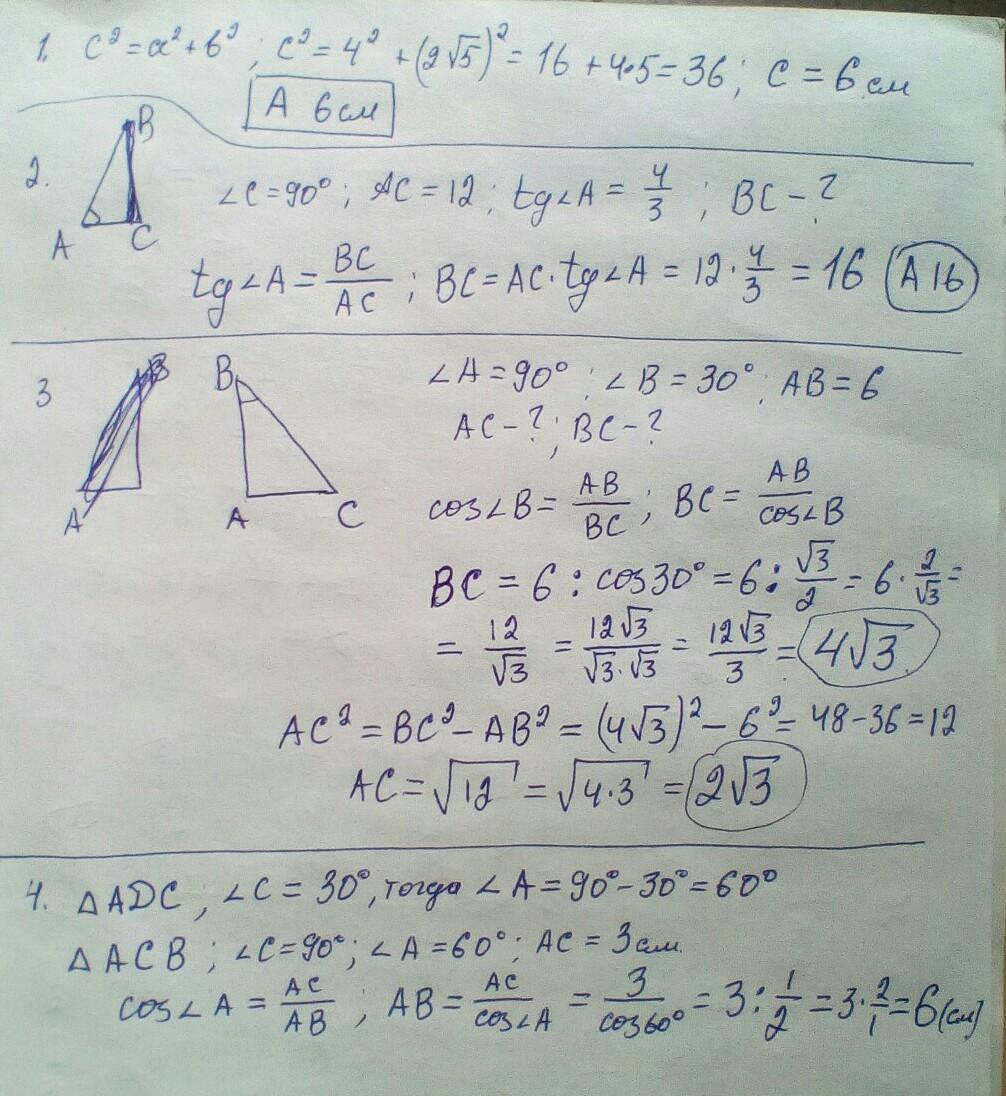 1. c² = a² + b² ; c² = 4² + (2√5)² = 16 + 4·5 = 36 ; c = 6 см
А 6 см
2.
B
A
C
∠C = 90° ; AC = 12 ; tg∠A = 4/3 ; BC - ?
tg∠A = BC/AC ; BC = AC · tg∠A = 12 · 4/3 = 16 А 16
3
B
A
B
A
C
∠A = 90° ; ∠B = 30° ; AB = 6
AC - ? ; BC - ?
cos∠B = AB/BC ; BC = AB/cos∠B
BC = 6 : cos30° = 6 : √3/2 = 6 · 2/√3 =
= 12/√3 = 12√3/√3·√3 = 12√3/3 = 4√3
AC² = BC² - AB² = (4√3)² - 6² = 48 - 36 = 12
AC = √12 = √4·3 = 2√3
4. △ADC , ∠C = 30°, тогда ∠A = 90° - 30° = 60°
△ACB ; ∠C = 90° ; ∠A = 60° ; AC = 3 см.
cos∠A = AC/AB ; AB = AC/cos∠A = 3/cos60° = 3 : 1/2 = 3 · 2/1 = 6 (см)